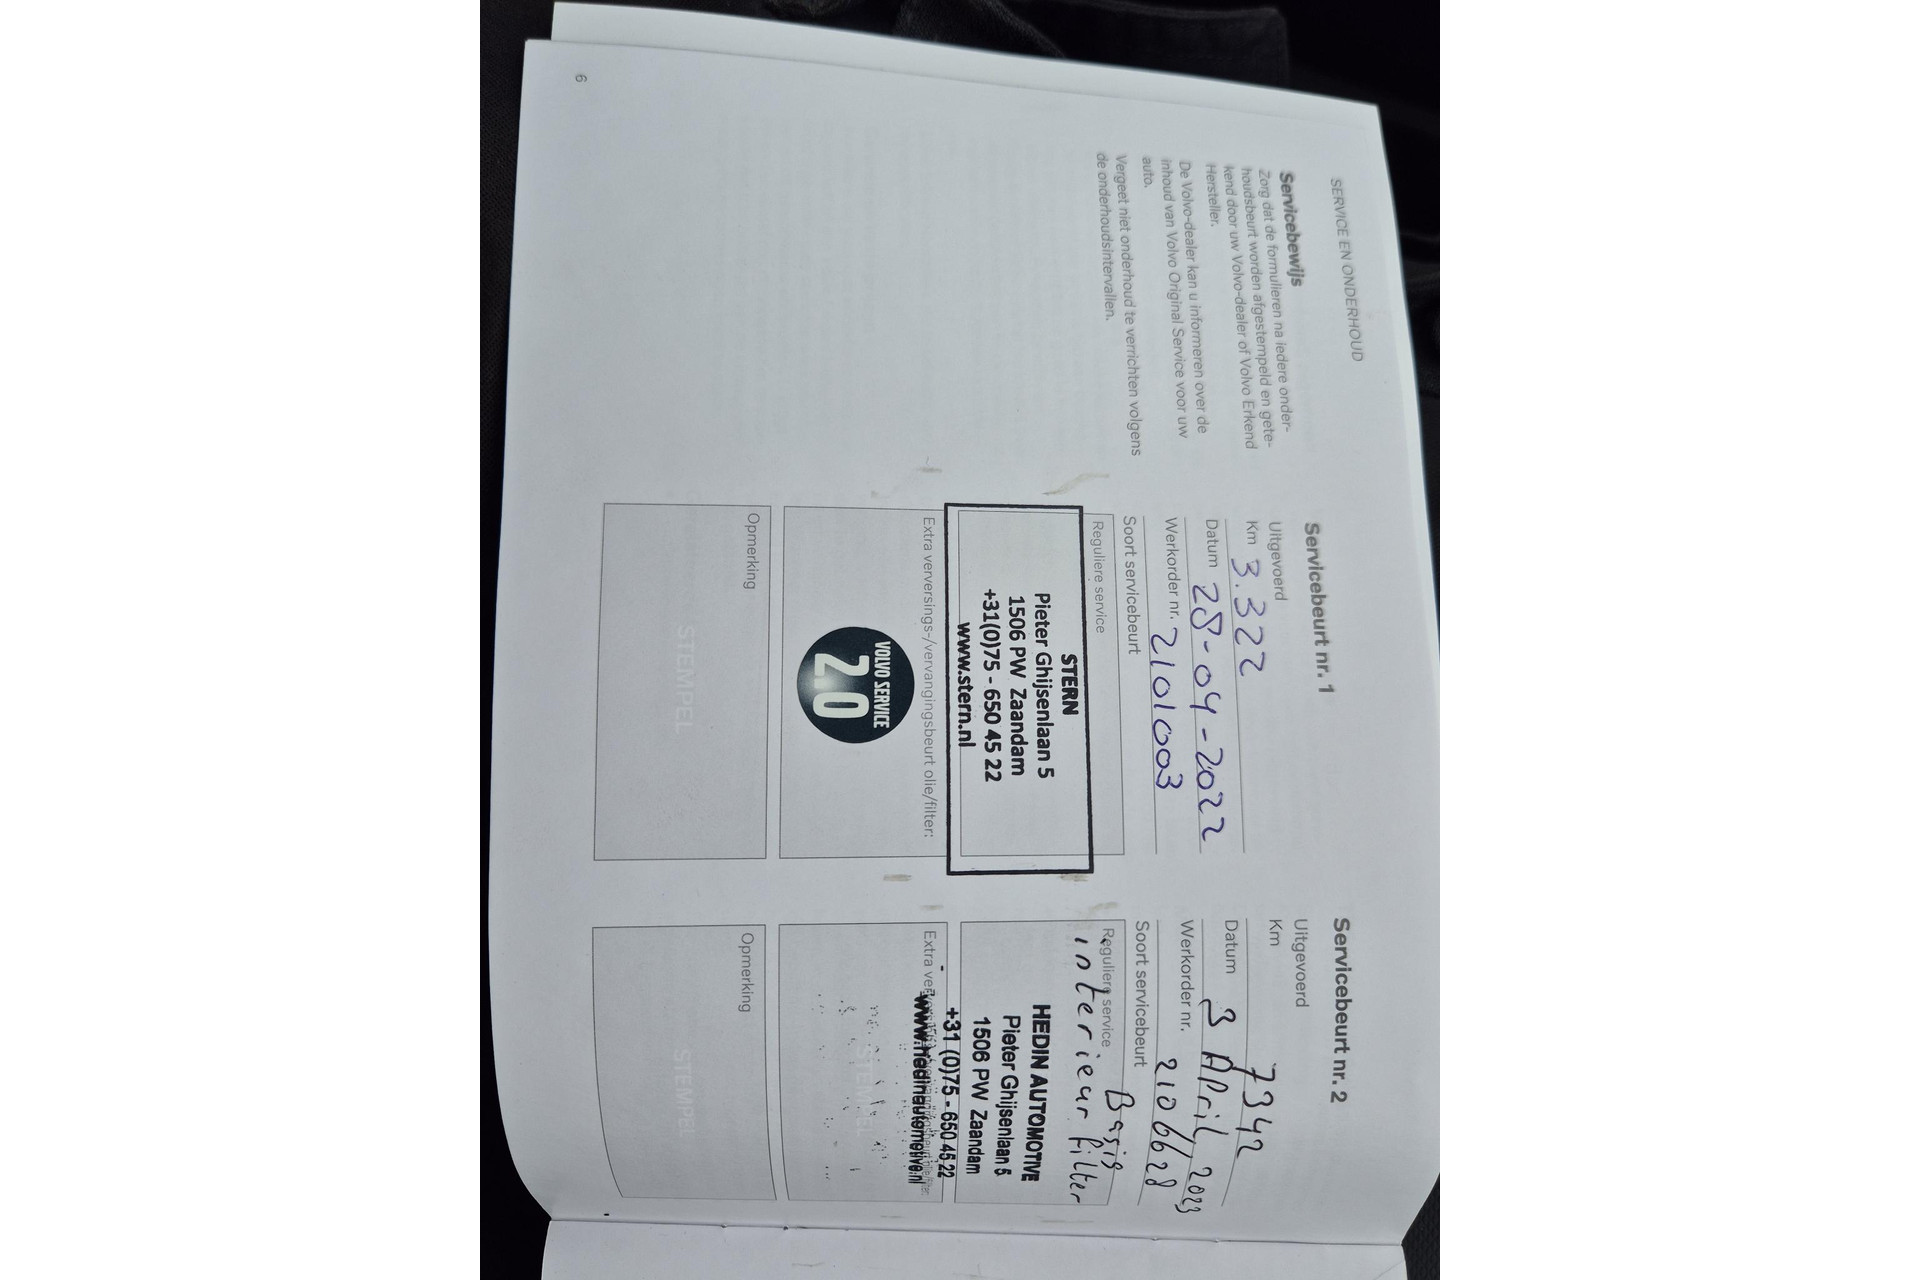 SERVICE EN ONDERHOUD
Servicebewijs
Zorg dat de formulieren na iedere onder-
houdsbeurt worden afgestempeld en gete-
kend door uw Volvo-dealer of Volvo Erkend
Hersteller.
De Volvo-dealer kan u informeren over de
inhoud van Volvo Original Service voor uw
auto.
Vergeet niet onderhoud te verrichten volgens
de onderhoudsintervallen.
6
Servicebeurt nr. 1
Uitgevoerd
Km 3.322
Datum 28-04-2022
Werkorder nr. 2101003
Soort servicebeurt
Reguliere service
STERN
Pieter Ghijsenlaan 5
1506 PW Zaandam
+31(0)75 - 650 45 22
www.stern.nl
Extra verversings-/vervangingsbeurt olie/filter:
VOLVO SERVICE
2.0
Opmerking
STEMPEL
Servicebeurt nr. 2
Uitgevoerd
Km 7342
Datum 3 April 2023
Werkorder nr. 2106628
Soort servicebeurt
Basis
Reguliere service
interieur filter
HEDIN AUTOMOTIVE
Pieter Ghijsenlaan 5
1506 PW Zaandam
+31 (0)75 - 650 45 22
www.hedinautomotive.nl
Extra
STEMPEL
Opmerking
STEMPEL